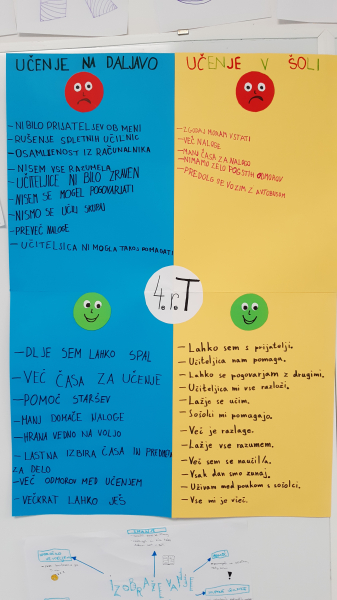 UČENJE NA DALJAVO
UČENJE V ŠOLI
- NI BILO PRIJATELJEV OB MENI
- RUŠENJE SPLETNIH UČILNIC
- OSAMLJENOST IZ RAČUNALNIKA
- NISEM VSE RAZUMELA
- UČITELJICE NI BILO ZRAVEN
- NISEM SE MOGEL POGOVARJATI
- NISMO SE UČILI SKUPAJ
- PREVEČ NALOGE
- UČITELJICA NI MOGLA TAKOJ POMAGATI
- ZGODAJ MORAM VSTATI
- VEČ NALOGE
- MANJ ČASA ZA NALOGO
- NIMAMO ZELO POGOSTIH ODMOROV
- PREDOLGO SE VOZIM Z AVTOBUSOM
4. r. T
- DLJE SEM LAHKO SPAL
- VEČ ČASA ZA UČENJE
- POMOČ STARŠEV
- MANJ DOMAČE NALOGE
- HRANA VEDNO NA VOLJO
- LASTNA IZBIRA ČASA IN PREDMETA
ZA DELO
- VEČ ODMOROV MED UČENJEM
- VEČKRAT LAHKO JEŠ
- Lahko sem s prijatelji.
- Učiteljica nam pomaga.
- Lahko se pogovarjam z drugimi.
- Učiteljica mi vse razloži.
- Lažje se učim.
- Sošolci mi pomagajo.
- Več je razlage.
- Lažje vse razumem.
- Več sem se naučil/a.
- Vsak dan smo zunaj.
- Uživam med poukom s sošolci.
- Vse mi je všeč.
IZOBRAŽEVANJE